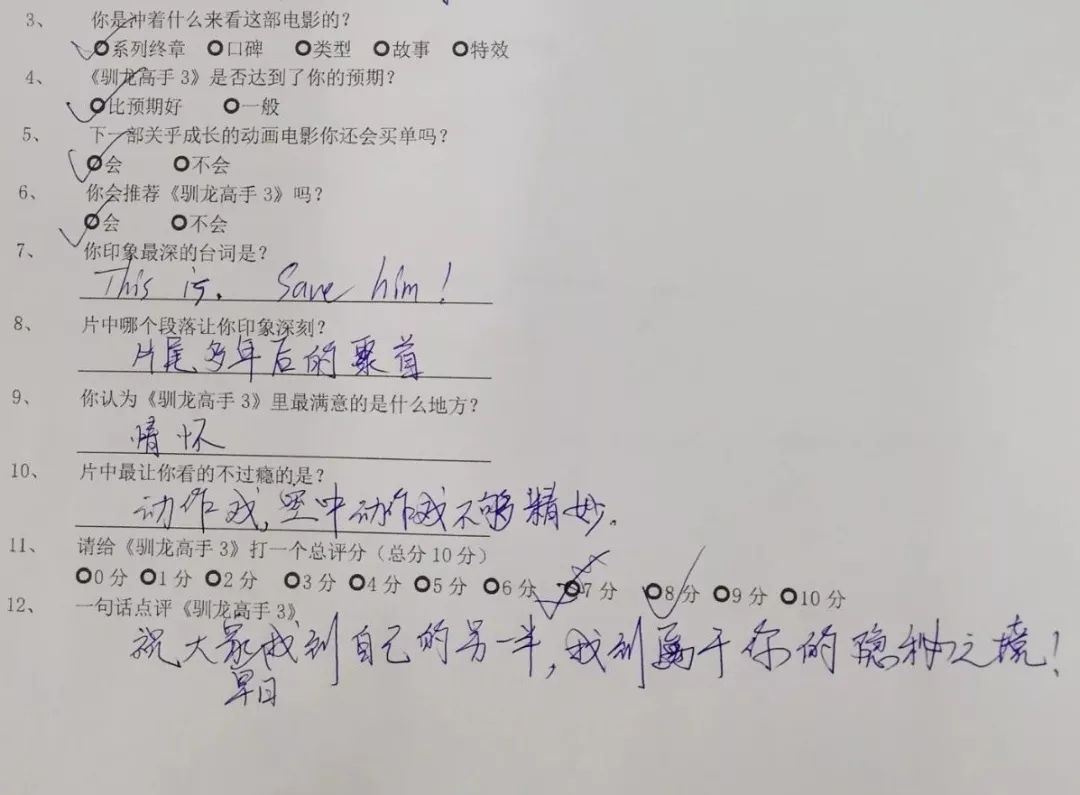 3、 你是冲着什么来看这部电影的？
系列终章 口碑 类型 故事 特效
4、 《驯龙高手 3》是否达到了你的预期？
比预期好 一般
5、 下一部关乎成长的动画电影你还会买单吗？
会 不会
6、 你会推荐《驯龙高手 3》吗？
会 不会
7、 你印象最深的台词是？
This is. Save him!
8、 片中哪个段落让你印象深刻？
片尾多年后的聚首
9、 你认为《驯龙高手 3》里最满意的是什么地方？
情怀
10、 片中最让你看的不过瘾的是？
动作戏，空中动作戏不够精妙。
11、 请给《驯龙高手 3》打一个总评分（总分 10 分）
0 分 1 分 2 分 3 分 4 分 5 分 6 分 7 分 8 分 9 分 10 分
12、 一句话点评《驯龙高手 3》
祝大家找到自己的另一半，找到属于你的隐秘之境！
早日